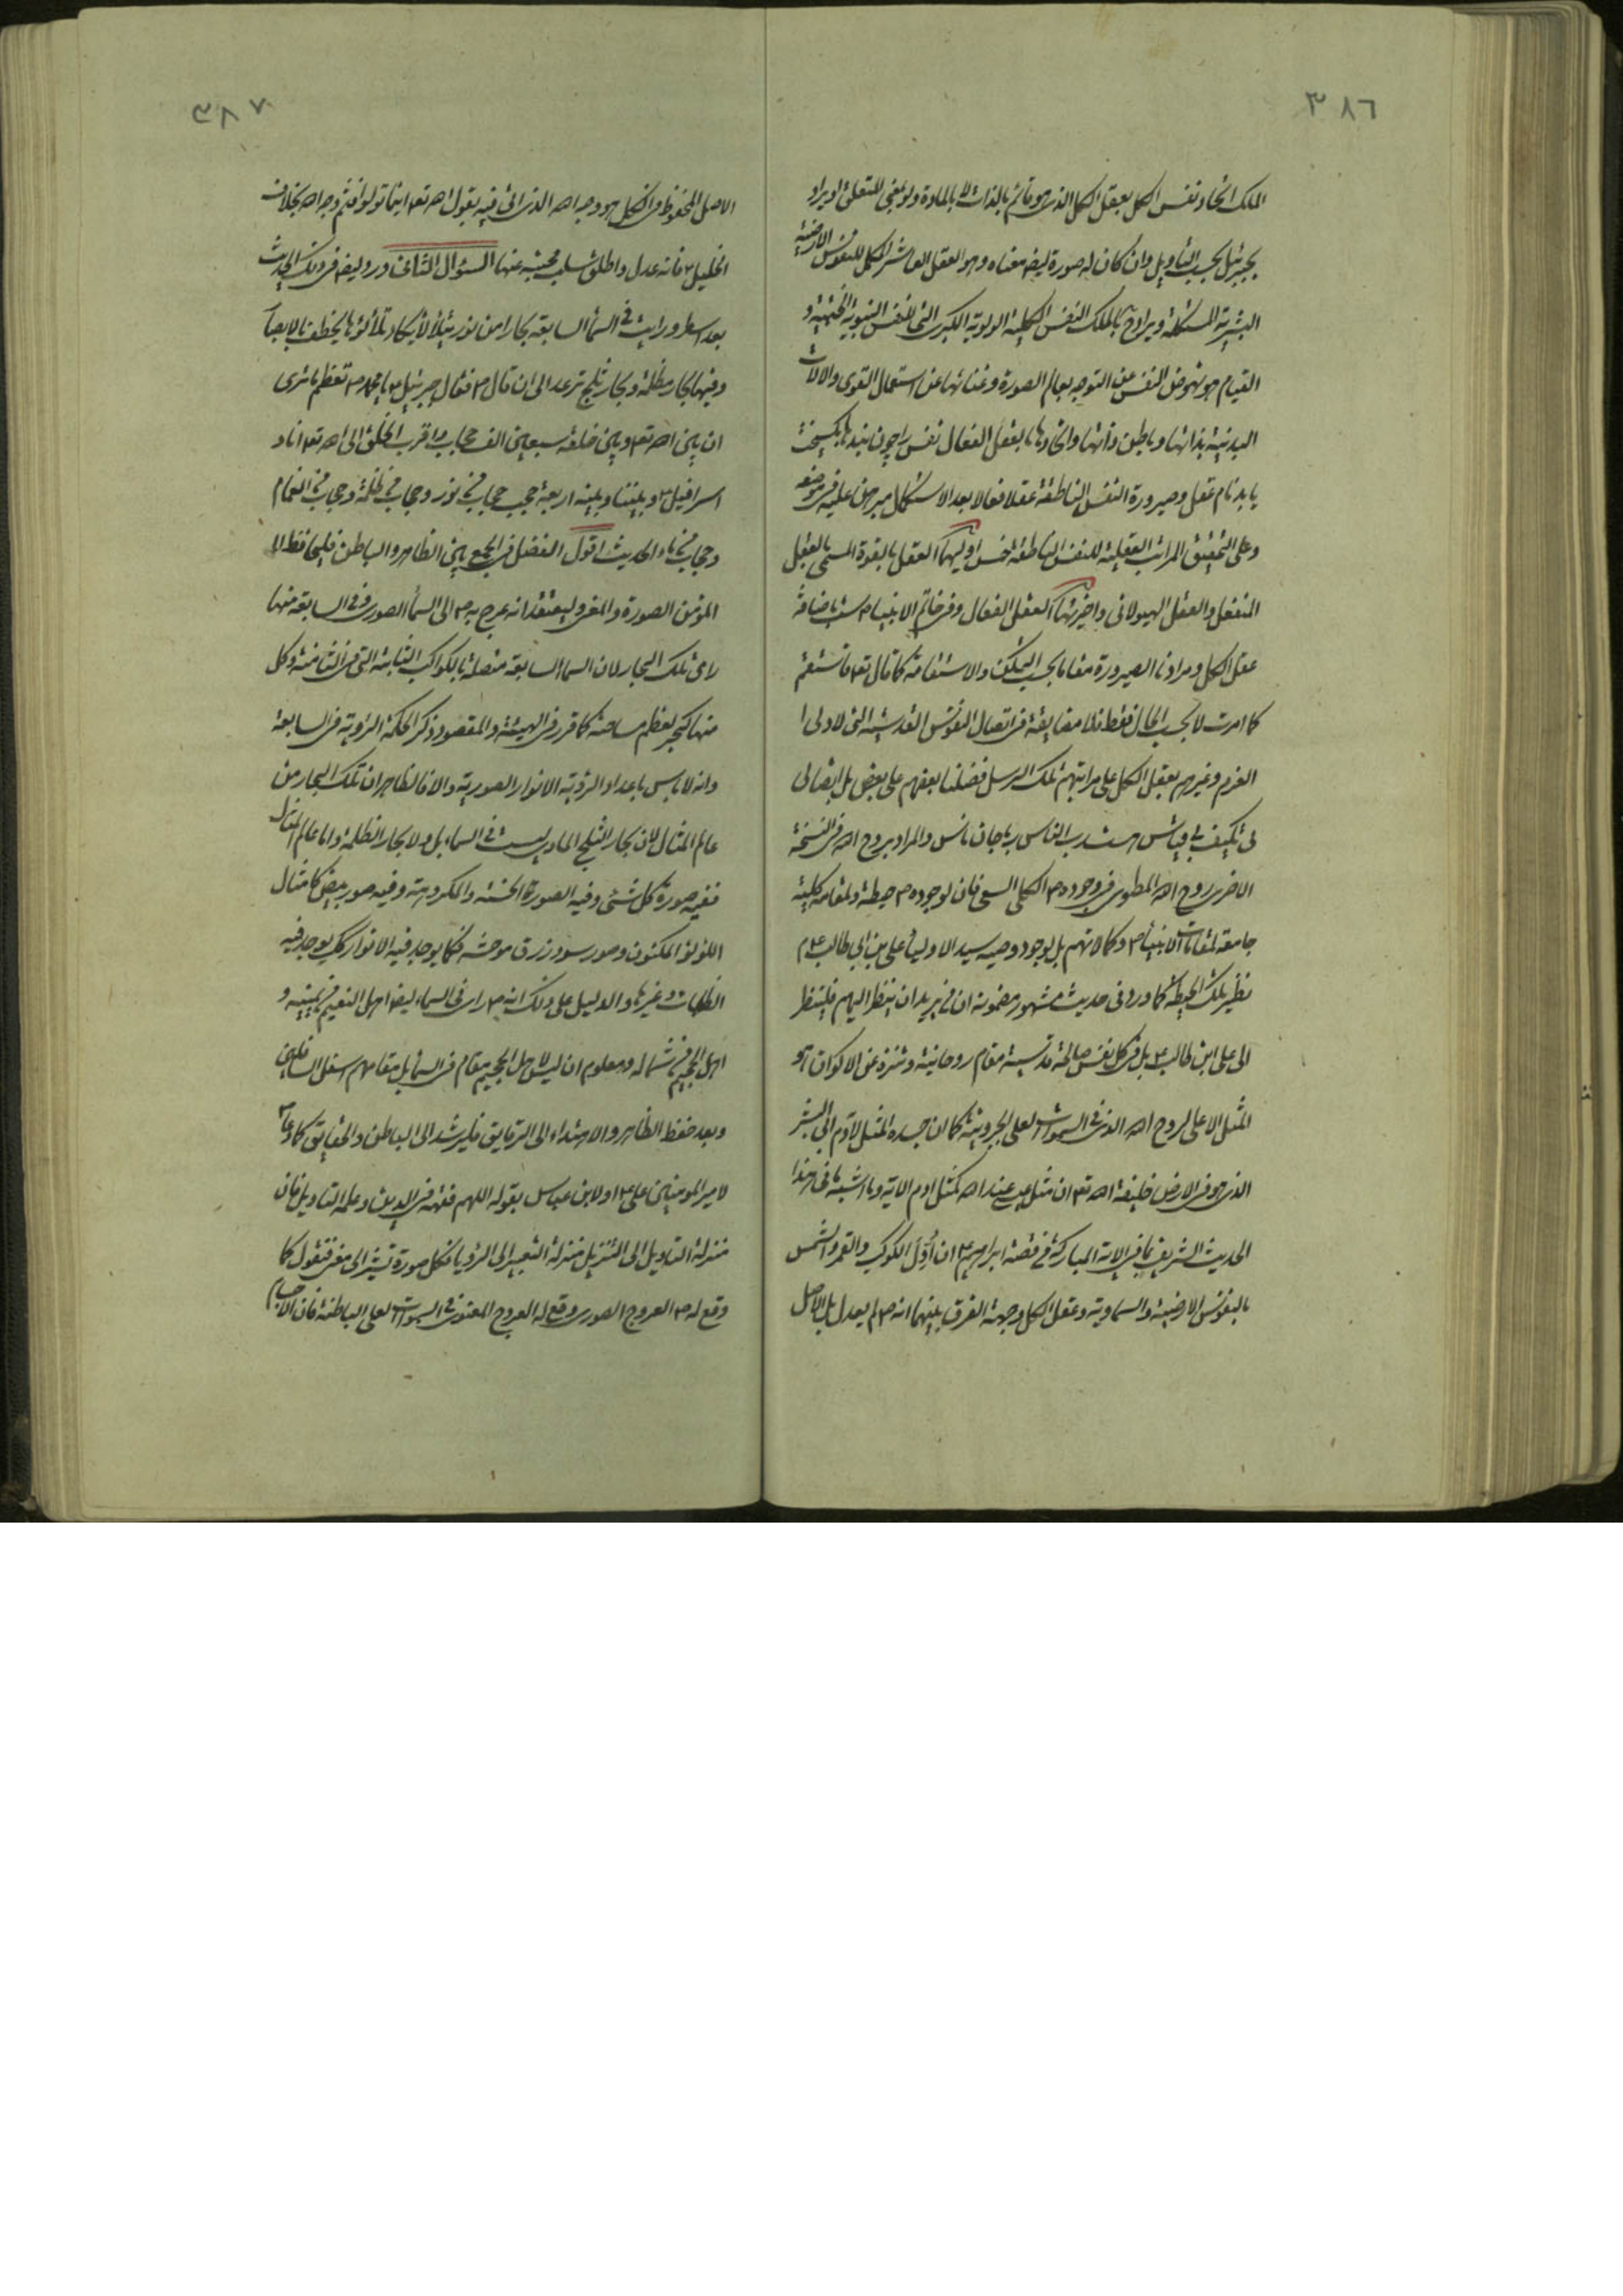 ٣٨٦
الملك اتحاد نفس الكل بعقل الكل الذى هو قائم بالذات لا بالمادة ولو بنحو التعلق او يراد
بجبرئيل بحسب التأويل وان كان له صورة ايضا معناه وهو العقل العاشر المكمل للنفوس الارضية
البشرية المستكملة ويراد ح بالملك النفس الكلية الولوية الكبرى التى للنفس النبوية الختمية و
القيام هو نهوض النفس عن التوجه بعالم الصورة وغنائها عن استعمال القوى والالات
البدنية بذاتها وباطن ذاتها واتحادها بالعقل الفعال نفس را چون بندها بگسيخت
يابد نام عقل وصيرورة النفس الناطقة عقلا فعالا بعد الاستكمال مبرهن عليه فى موضعه
وعلى التحقيق المراتب العقلية للنفس الناطقة خمس اوليها العقل بالقوة المسمى بالعقل
المنفعل والعقل الهيولانى واخيرتها العقل الفعال وفى خاتم الانبياء ص
عقل الكل ومرادنا الصيرورة مقاما بحسب التمكن والاستقامة كما قال تعه فاستقم
كما امرت لا بحسب الحال فقط فلا مضايقة فى اتصال النفوس القدسية التى لاولى ا
العزم وغيرهم بعقل الكل على مراتبهم تلك الرسل فضلنا بعضهم على بعض بل اتصالى
بى تكيف بى قياس هست رب الناس را با جان ناس والمراد بروح الله فى النسخة
الاخرى روح الله المطوى فى وجوده ص الكلى السعى فان لوجوده ص حيطة ولمقامه كلية
جامعة لمقامات الانبياء ص وكمالاتهم بل لوجود وصيه سيد الاولياء على بن ابى طالب ع م
نظير تلك الحيطة كما ورد فى حديث مشهور مضمونه ان من يريد ان ينظر اليهم فلينظر
الى على ابن طالب ع بل فى كل نفس صالحة قدسية مقام روحانية وتنزه عن الاكوان و
المثل الاعلى لروح الله الذى فى السموات العلى الجبروتية كما ان جسده المثل لآدم ابى البشر
الذى هو فى الارض خليفة الله تعه ان مثل عيسى عند الله كمثل ادم الاية وما اشبه ما فى هذا
الحديث الشريف بما فى الاية المباركة فى قصة ابراهيم ع ان أُوِّلَ الكوكب والقمر والشمس
بالنفوس الارضية والسماوية وعقل الكل وجهة الفرق بينهما انه ص لم يعدل بل الاصل
٣٨٧
الاصل المحفوظ فى الكل هو وجه الله الذى اتى فيه بقول الله تعه اينما تولوا فثم وجه الله بخلاف
الخليل ع فانه عدل واطلق سلب محبته عنها السؤال الثامن ورد ايضا فى ذلك الحديث
بعد اسطر ورايت فى السماء السابعة بحارا من نور يتلألأ يكاد تلألؤها يخطف بالابصار
وفيها بحار مظلمة وبحار ثلج ترعد الى ان قال ص فقال جبرئيل ع يا محمد ص تعظم ما ترى
ان بين الله تعه وبين خلقه سبعين الف حجاب واقرب الخلق الى الله تعه انا و
اسرافيل ع وبيننا وبينه اربعة حجب حجاب من نور وحجاب من ظلمة وحجاب من الغمام
وحجاب من ماء الحديث اقول الفضل فى الجمع بين الظاهر والباطن فليحافظ الا
المؤمن الصورة والمعنى ليعتقد انه عرج به ص الى السماء الصورى وفى السابعة منها
راى تلك البحار لان السماء السابعة متصلة بالكواكب الثابتة التى فى الثامنة وكل
منها كبحر بعظم مساحته كما قرر فى الهيئة والمقصود ذكر الحكمة الرؤية فى السابعة
وانه لا باس باعداد الرؤية الانوار الصورية والا فالظاهر ان تلك البحار من
عالم المثال لان بحار الثلج المادى ليست فى السماء بل ولا بحار الظلمة واما عالم المثال
ففيه صورة كل شئى وفيه الصورة الحسنة والمكروهة وفيه صور بيض كامثال
اللؤلؤ المكنون وصور سود زرق موحشة فكما يوجد فيه الانوار كك يوجد فيه
الظلمات وغيرها والدليل على ذلك انه ص راى فى السماء ايضا اهل النعيم فى يمينه و
اهل الجحيم فى شماله ومعلوم ان ليس لاهل الجحيم مقام فى السماء بل مقامهم اسفل السافلين
وبعد حفظ الظاهر والاهتداء الى الرقايق فليرشد الى الباطن والحقايق كما دعا ص
لامير المومنين على ع اولا بن عباس بقوله اللهم فقهه فى الدين وعلمه التاويل فان
منزلة التاويل الى التنزيل منزلة التعبير الى الرؤيا فكل صورة تشير الى معنى فنقول كما
وقع له ص العروج الصورى وقع له العروج المعنوى فى السموات العلى الباطنة فان